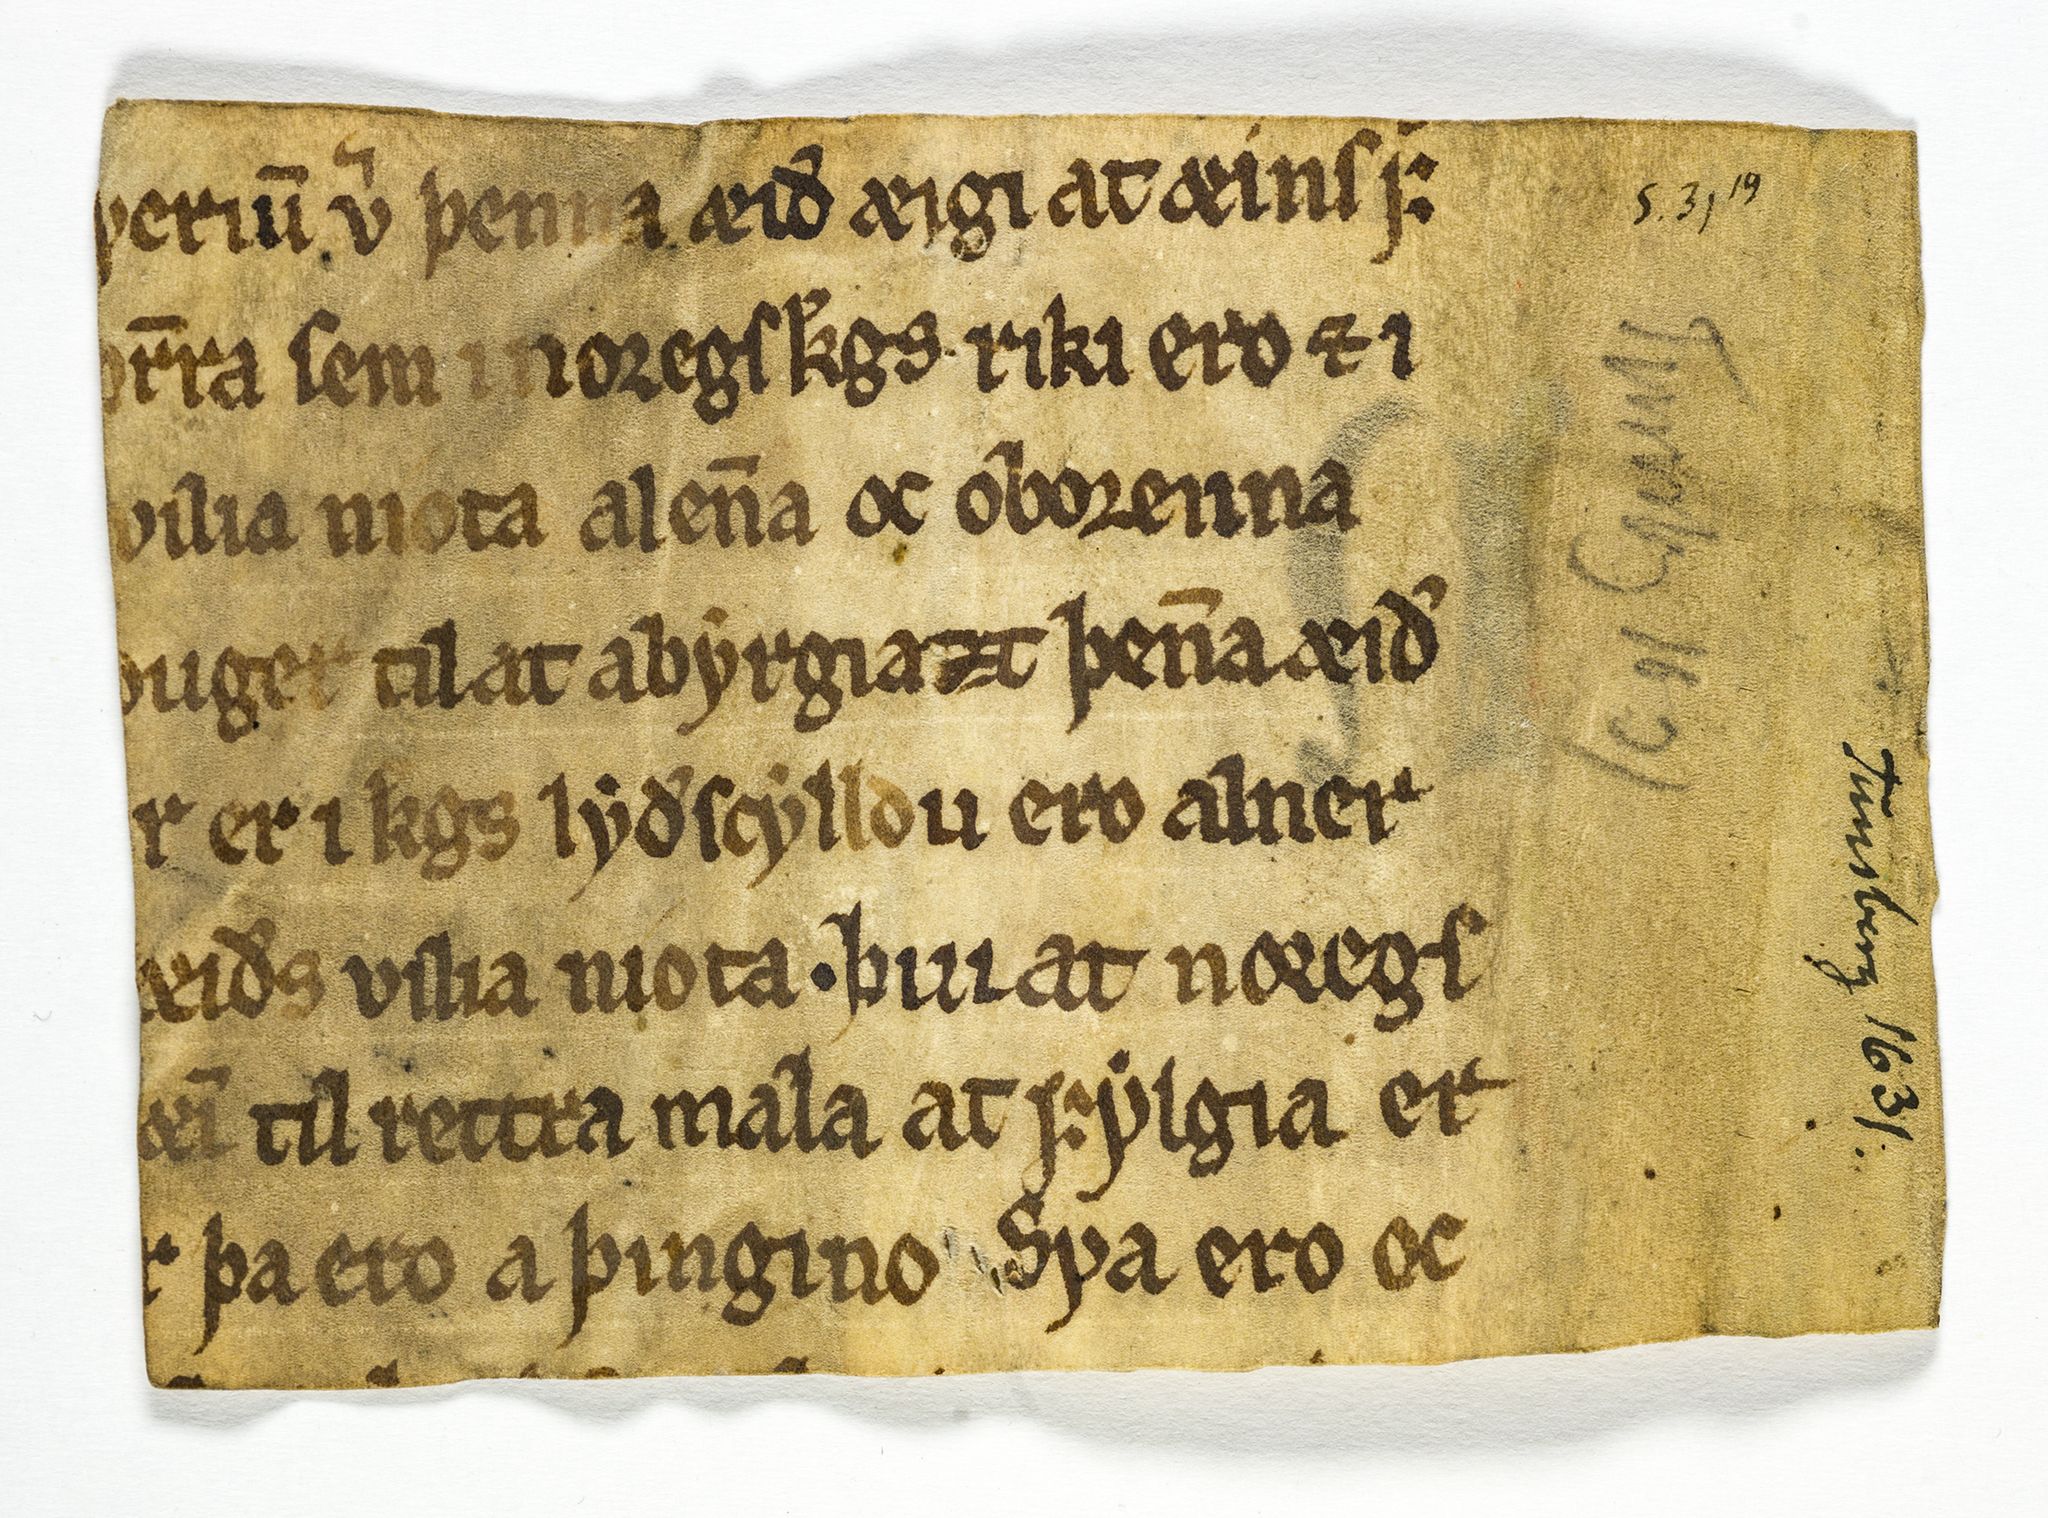 ꝩeriū v͛ þenna æið æigi at æinſ ꝼ
or̄ra ſem i noꝛegſ k̄gs riki ero ⁊ i
vilia niota alen̄a oc óboꝛenna
duger til at abẏrgiazt þen̄a æið
r er i k̄gs lẏðſcẏlldu ero alner
æiðs vilia niota · þui at noregſ
æī til rettra mála at ꝼẏlgia er
r þa ero a þingino Sꝩa ero oc
S. 3, 19
Tunsberg 1631.